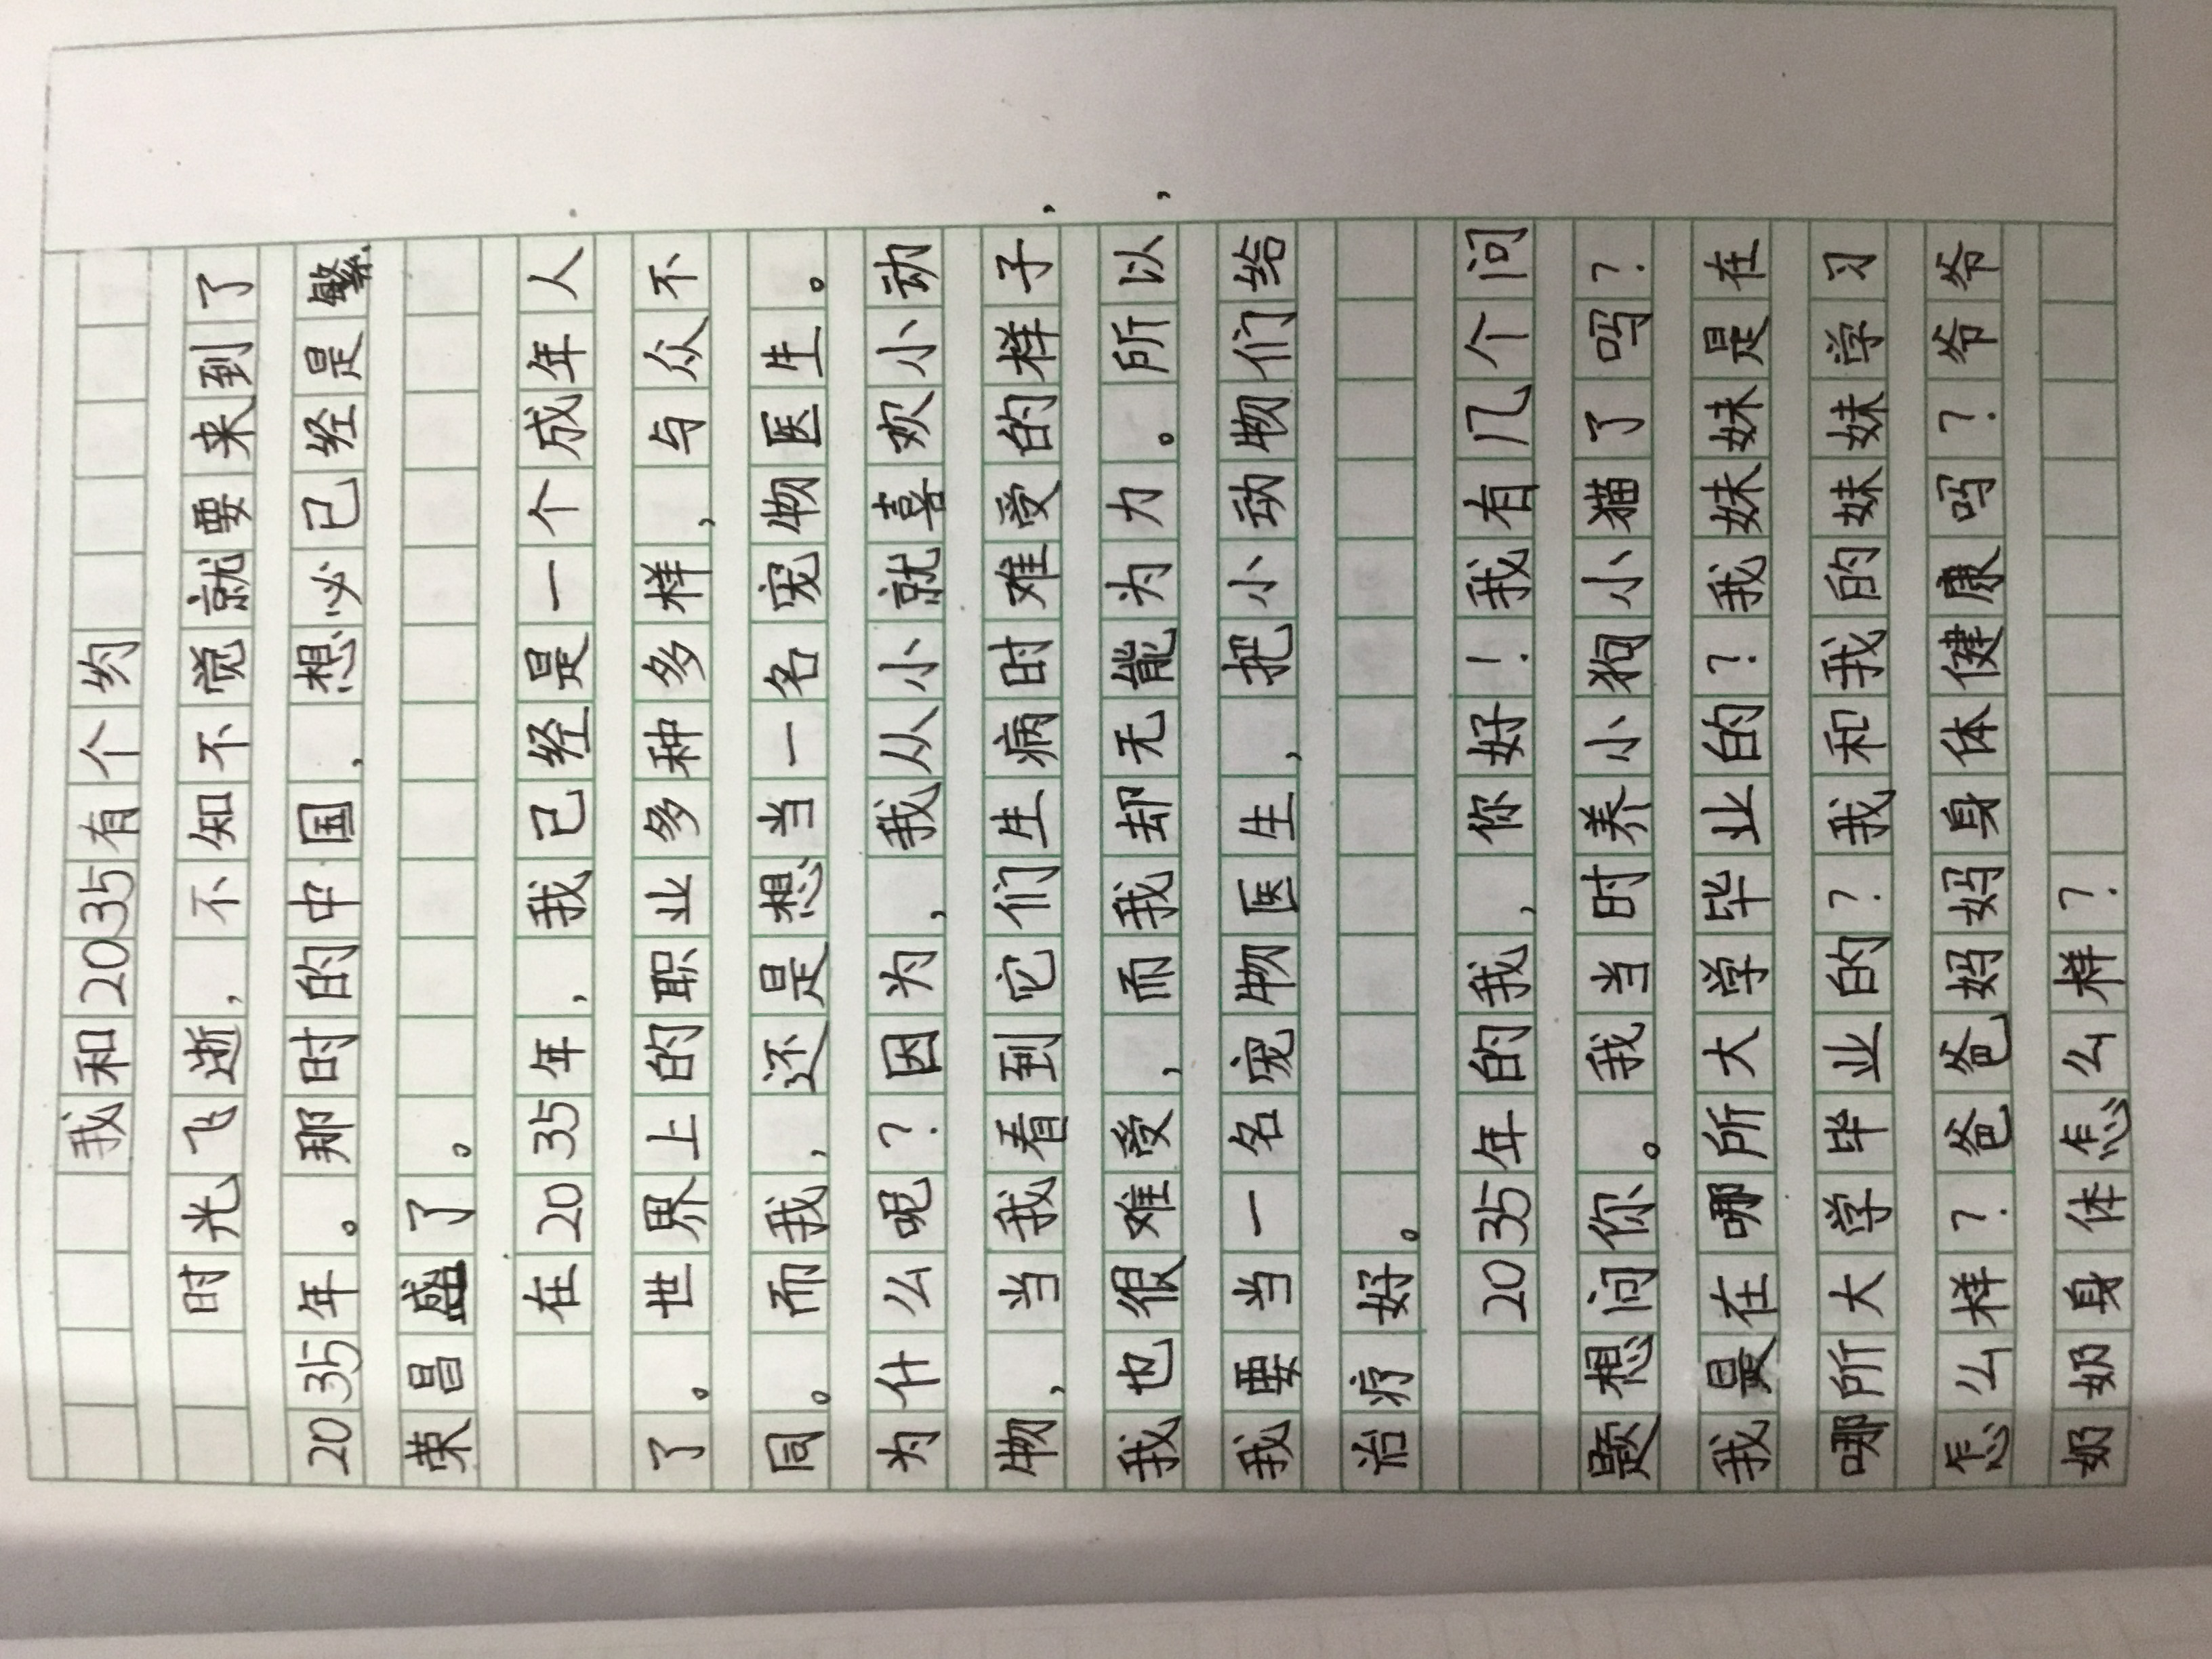 我和2035有个约
时光飞逝，不知不觉就要来到了
2035年。那时的中国，想必已经是繁
荣昌盛了。
在2035年，我已经是一个成年人
了。世界上的职业多种多样，与众不
同。而我，还是想当一名宠物医生。
为什么呢？因为，我从小就喜欢小动
物，当我看到它们生病时难受的样子，
我也很难受，而我却无能为力。所以，
我要当一名宠物医生，把小动物们给
治疗好。
2035年的我，你好！我有几个问
题想问你。我当时养小狗小猫了吗？
我是在哪所大学毕业的？我妹妹是在
哪所大学毕业的？我和我的妹妹学习
怎么样？爸爸妈妈身体健康吗？爷爷
奶奶身体怎么样？